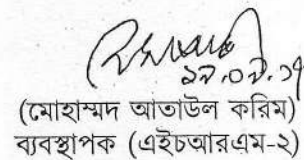 (মোহাম্মদ আতাউল করিম)
ব্যবস্থাপক (এইচআরএম-২)